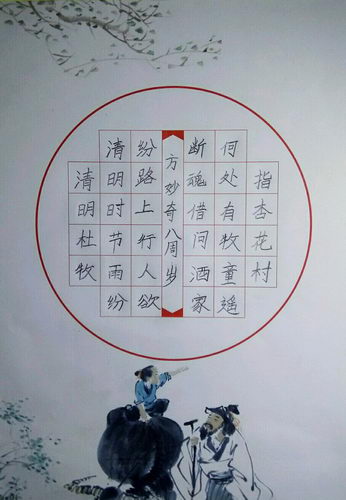 清明杜牧
清明时节雨纷
纷路上行人欲
方妙奇八周岁
断魂借问酒家
何处有牧童遥
指杏花村